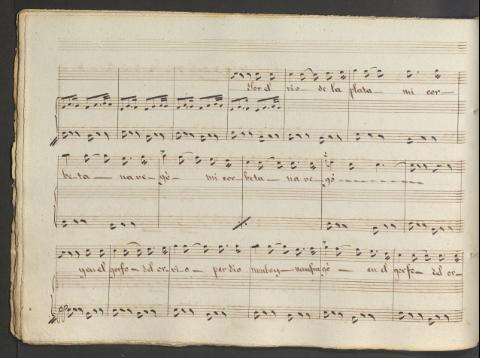 Por el rio de la plata mi cor-
beta navegò mi corbeta navegò
y en el gorfo del orvio perdio rumbo y naufragò en el gorfo del or-